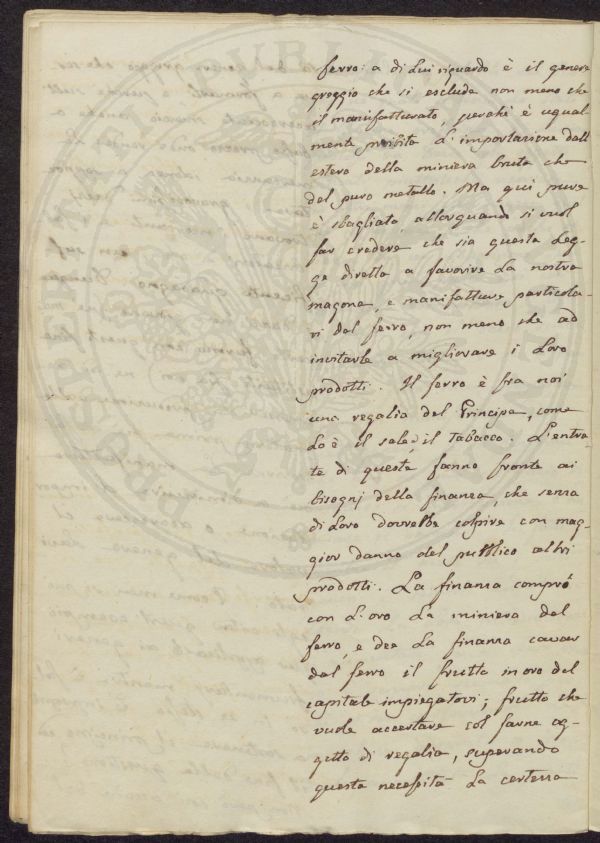 ferro: a di Lui riguardo è il genere
greggio che si esclude non meno che
il manifatturato, perchè è ugual-
mente proibita L'importazione dall'
estero della miniera bruta che
del puro metallo. Ma quì pure
è sbagliato, allorquando si vuol
far credere che sia questa Leg-
ge diretta a favorire La nostra
magona, e manifatture particola-
ri del ferro, non meno che ad
invitarle a migliorare i Loro
prodotti. Il ferro è fra noi
una regalia del Principe, come
Lo è il sale, e il Tabacco. L'entra-
te di queste fanno fronte ai
bisognj della finanza, che senza
di Loro dovrebbe colpire con mag-
gior danno del pubblico altri
prodotti. La finanza comprò
con L'oro La miniera del
ferro, e dee La finanza cavar
dal ferro il frutto in oro del
capitale impiegatovi; frutto che
vuole accertare col farne og-
getto di regalia, superando
questa necessità La certezza